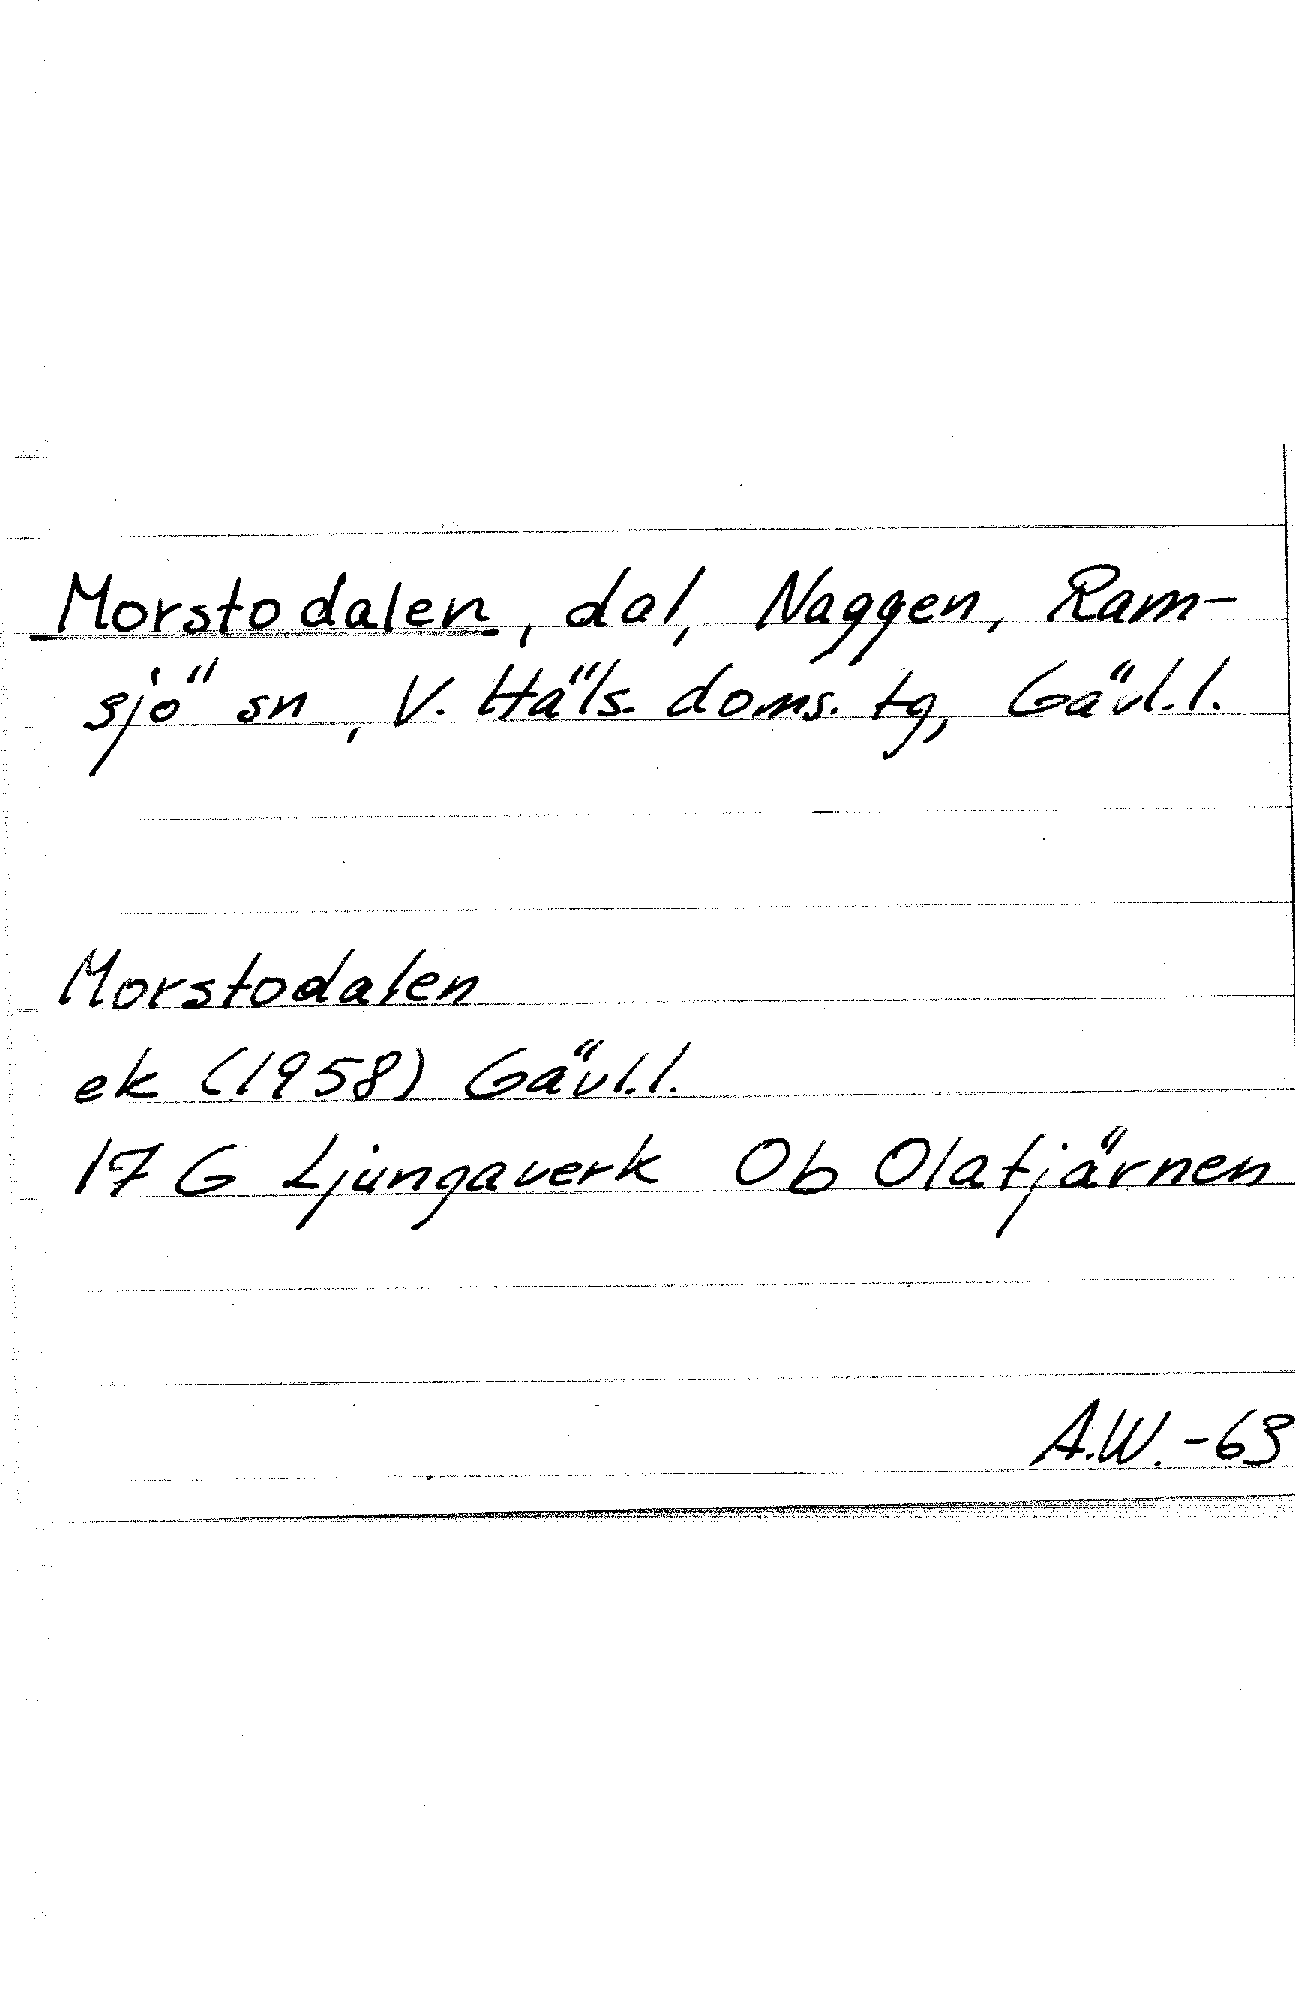 Morstodalen, dal, Naggen, Ram-
sjö sn, V. Häls. doms. tg, Gävl.l.
Morstodalen
ek (1958) Gävl.l.
17 G Ljungaverk Ob Olatjärnen
A.W. -63